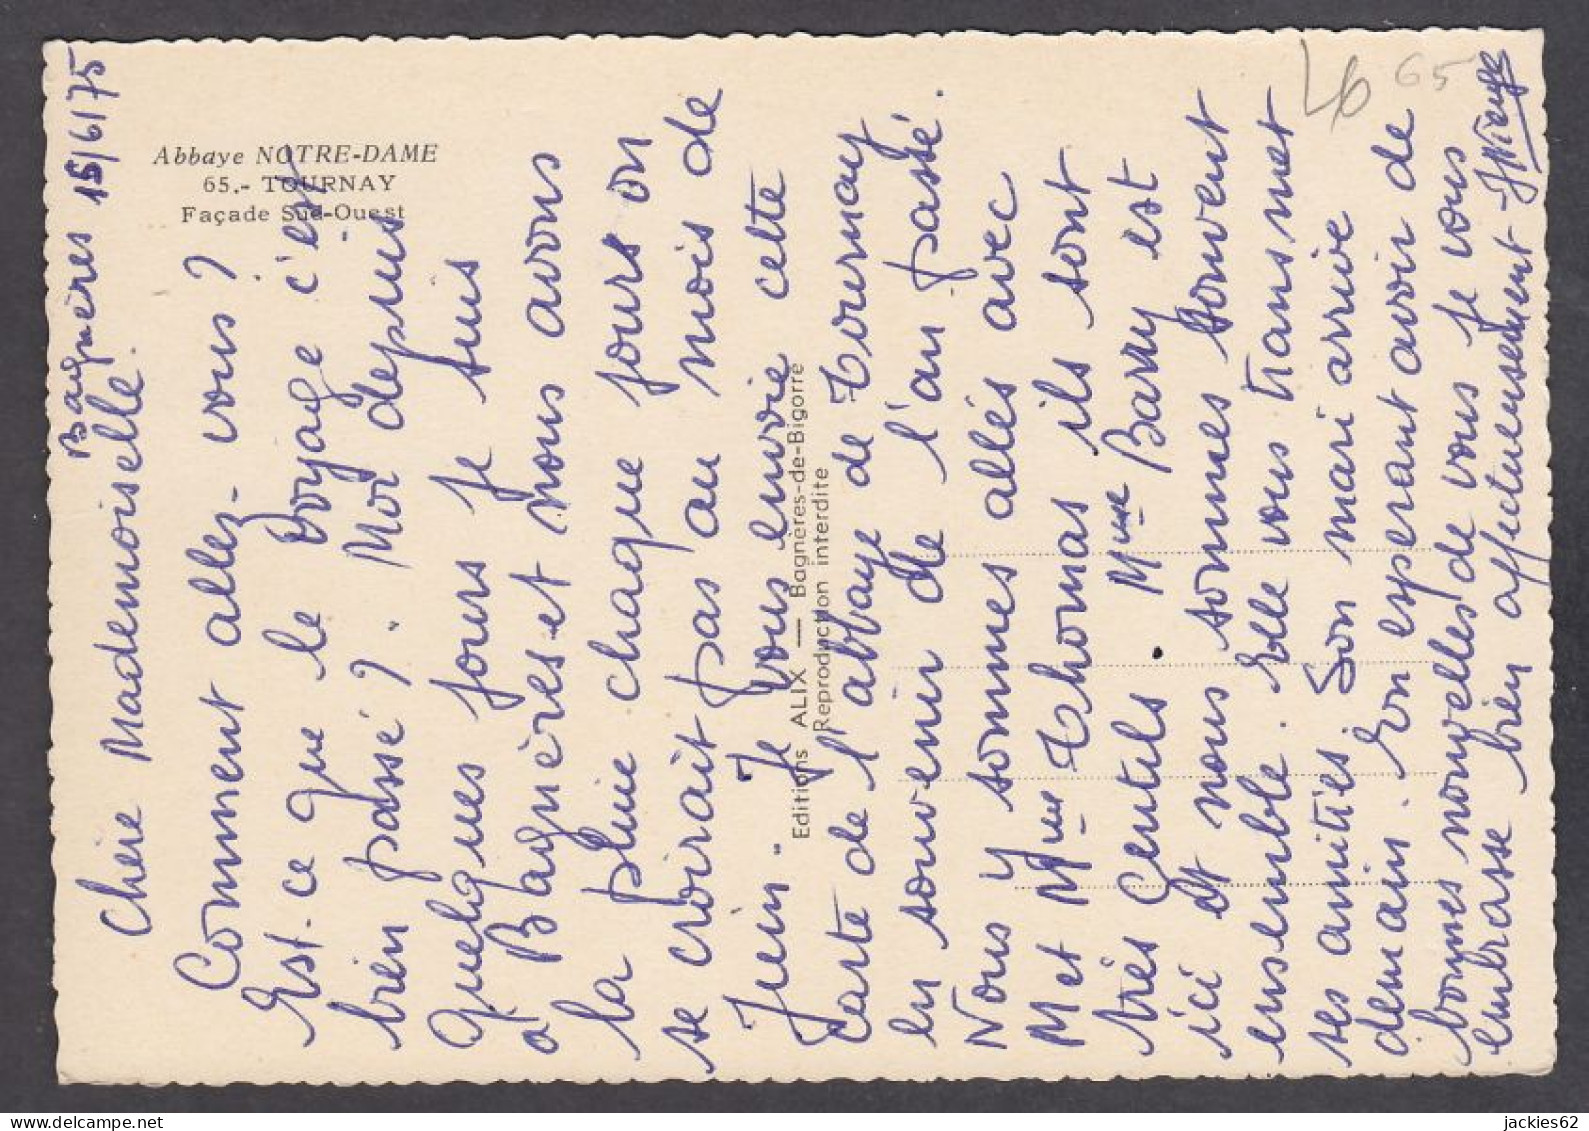 Abbaye NOTRE-DAME
65.- TOURNAY
Façade Sud-Ouest
Editions ALIX — Bagnères-de-Bigorre
Reproduction interdite
L6 65
Bagnères 15/6/75
Chère Mademoiselle.
Comment allez-vous ?
Est-ce que le voyage c'est
bien passé ? . Moi depuis
quelques jours je suis
à Bagnères et nous avons
la pluie chaque jours on
se croirait pas au mois de
Juin. Je vous envoie cette
carte de l'abbaye de Tournay
en souvenir de l'an passé.
Nous y sommes allés avec
M et Mme Thomas ils sont
très Gentils. Mme Barry est
ici et nous sommes souvent
ensemble. Elle vous transmet
ses amitiés. Son mari arrive
demain. En esperant avoir de
bonnes nouvelles de vous je vous
embrasse bien affectueusement -
jackies62